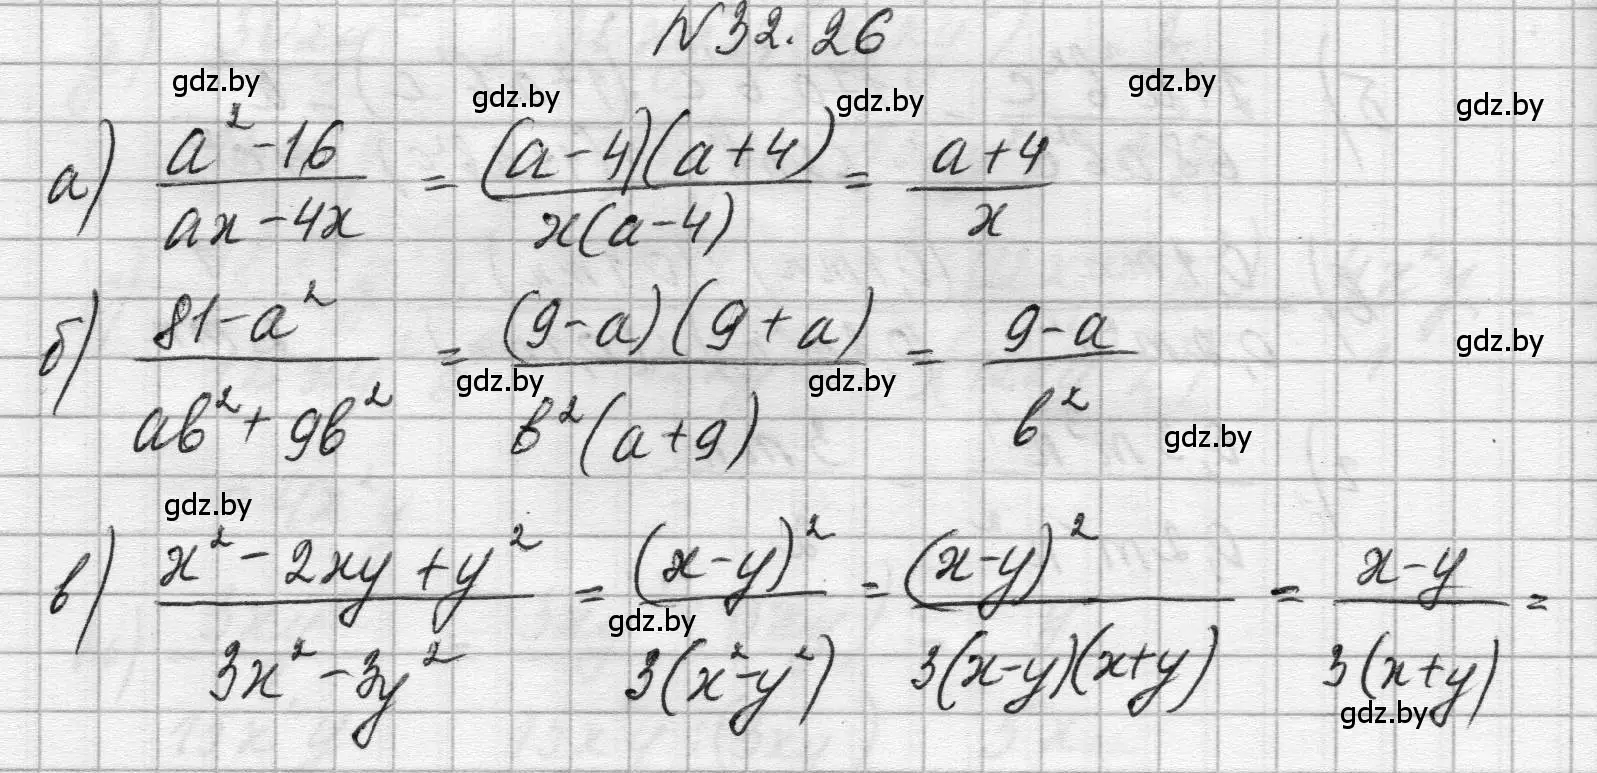 №32.26
gdz.by gdz.by gdz.by gdz.by gdz.by
а) (a² - 16)/(ax - 4x) = ((a - 4)(a + 4))/(x(a - 4)) = (a + 4)/x
б) (81 - a²)/(ab² + 9b²) = ((9 - a)(9 + a))/(b²(a + 9)) = (9 - a)/b²
gdz.by gdz.by gdz.by gdz.by
gdz.by
в) (x² - 2xy + y²)/(3x² - 3y²) = (x - y)²/(3(x² - y²)) = (x - y)²/(3(x - y)(x + y)) = (x - y)/(3(x + y)) =
gdz.by gdz.by